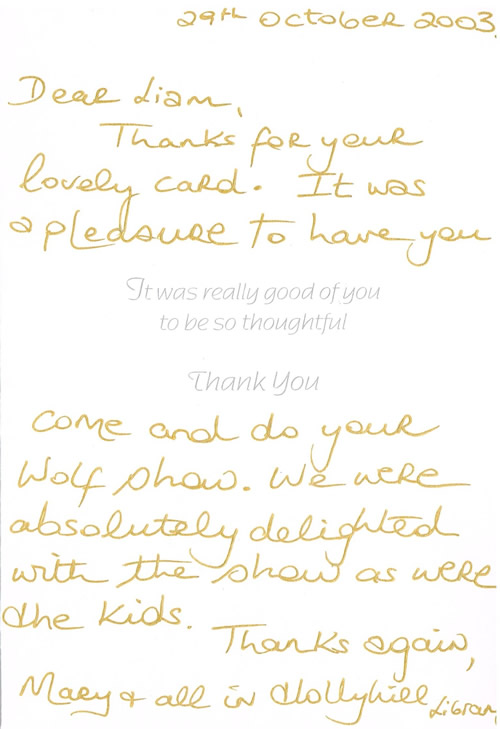 29th October 2003.
Dear Liam,
Thanks for your
lovely card. It was
a pleasure to have you
It was really good of you
to be so thoughtful
Thank You
come and do your
Wolf show. We were
absolutely delighted
with the show as were
the kids.
Thanks again,
Mary & all in Hollyhill